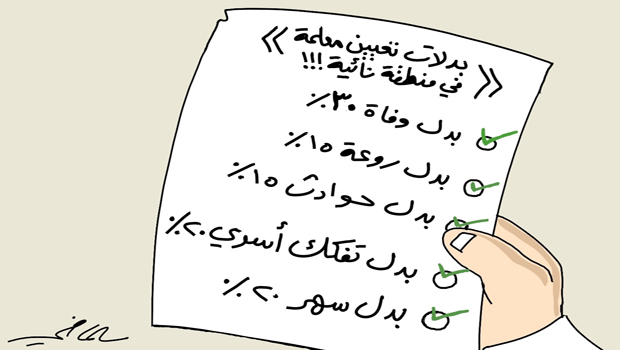 « بدلات تعيين معلمة
في منطقة نائية !!! »
بدل وفاة ٣٠٪
بدل روعة ١٥٪
بدل حوادث ١٥٪
بدل تفكك أسري ٢٠٪
بدل سهر ٢٠٪